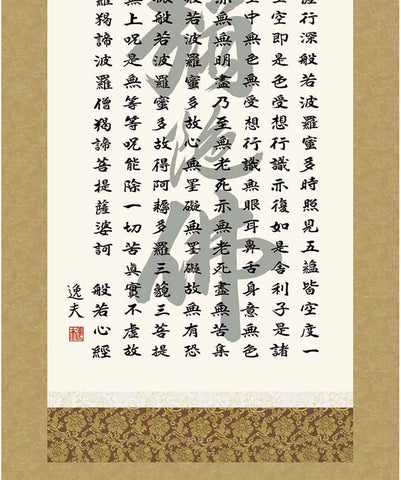 行深般若波羅蜜多時照見五蘊皆空度一
空即是色受想行識亦復如是舍利子是諸
空中無色無受想行識無眼耳鼻舌身意無色
亦無無明盡乃至無老死亦無老死盡無苦集
般若波羅蜜多故心無罣礙罣礙故無有恐
般若波羅蜜多故得阿耨多羅三藐三菩提
無上呪是無等等呪能除一切苦真實不虚故
羅羯諦波羅僧羯諦菩提薩婆訶 般若心経
逸夫
陀佛